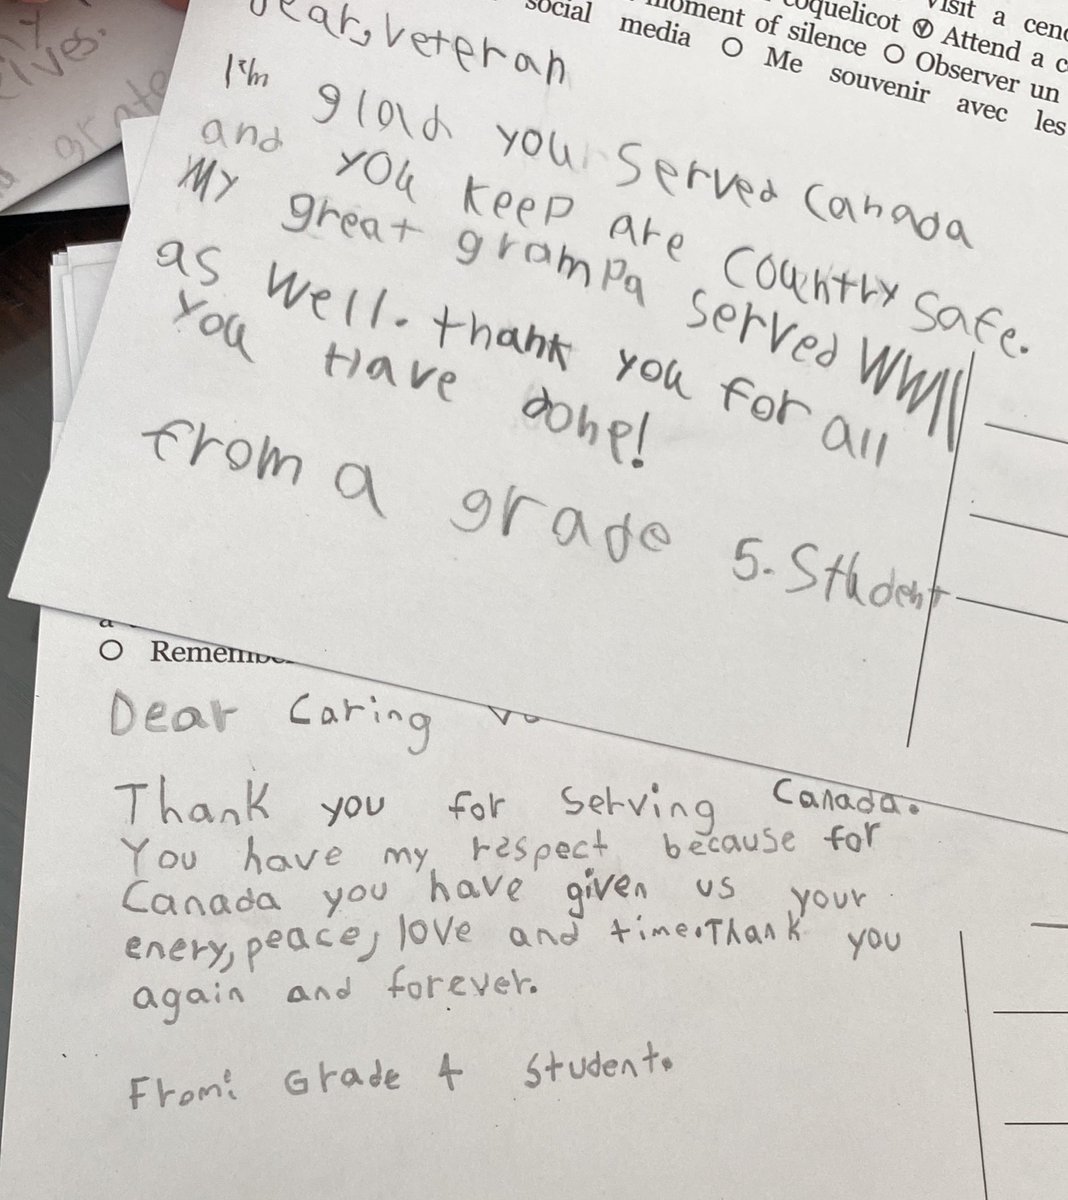 lves.
grate
visit a cen
coquelicot Attend a c
moment of silence Observer un
social media Me souvenir avec les
Dear, veteran
I'm glad you served Canada
and you keep are country safe.
My great grampa served WWII
as well. thank you for all
you have done!
from a grade 5. Student
Dear Caring
Thank you for serving Canada.
You have my respect because for
Canada you have given us your
enery, peace, love and time. Thank you
again and forever.
From: Grade 4 Student.